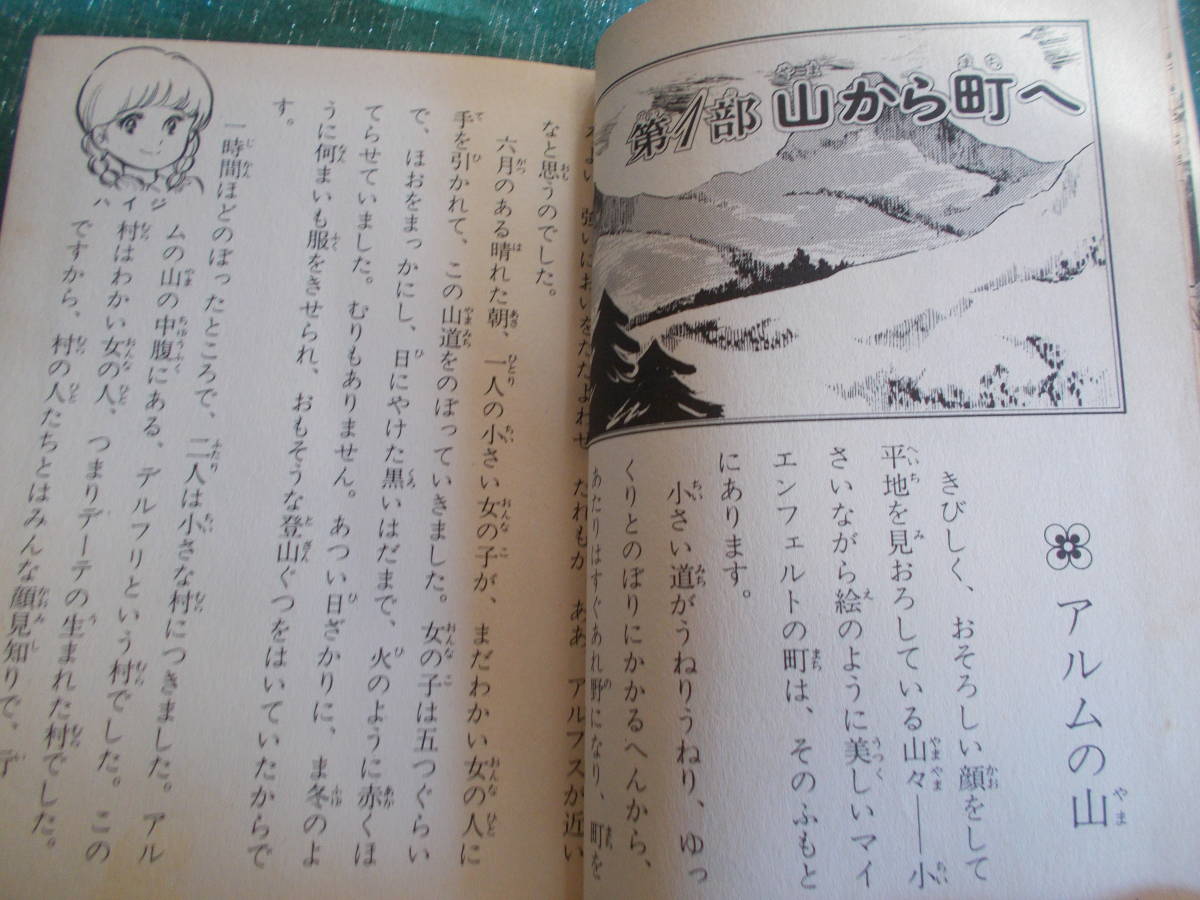 第1部 山から町へ
アルムの山
きびしく、おそろしい顔をして
平地を見おろしている山々――小
さいながら絵のように美しいマイ
エンフェルトの町は、そのふもと
にあります。
小さい道がうねりうねり、ゆっ
くりとのぼりにかかるへんから、
あたりはすぐあれ野になり、町を
よい、強いにおいをただよわせ
だれもが、ああ、アルプスが近い
なと思うのでした。
六月のある晴れた朝、一人の小さい女の子が、まだわかい女の人に
手を引かれて、この山道をのぼっていきました。女の子は五つぐらい
で、ほおをまっかにし、日にやけた黒いはだまで、火のように赤くほ
てらせていました。むりもありません。あつい日ざかりに、ま冬のよ
うに何まいも服をきせられ、おもそうな登山ぐつをはいていたからで
す。
一時間ほどのぼったところで、二人は小さな村につきました。アル
ムの山の中腹にある、デルフリという村でした。この
村はわかい女の人、つまりデーテの生まれた村でした。
ですから、村の人たちとはみんな顔見知りで、デ
ハイジ